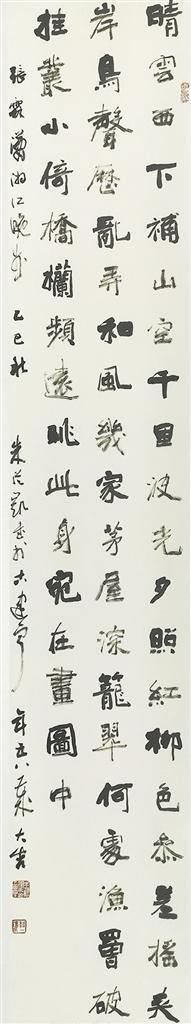 晴雲西下補山空千里波光夕照紅柳色參差搖夾
岸鳥聲歷亂弄和風幾家茅屋深籠翠何處漁罾破
桂叢小倚橋欄頻遠眺此身宛在畫圖中
張 湘江晚步 乙巳秋 朱 凱書於古建寧 年五八歲大吉